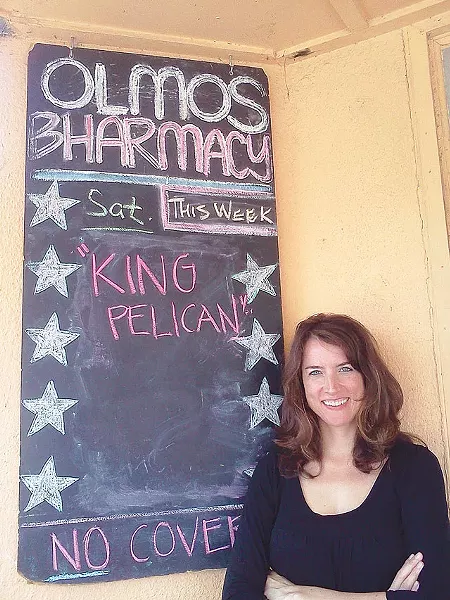 OLMOS
BHARMACY
Sat. THIS WEEK
"KING
PELICAN"
NO COVER